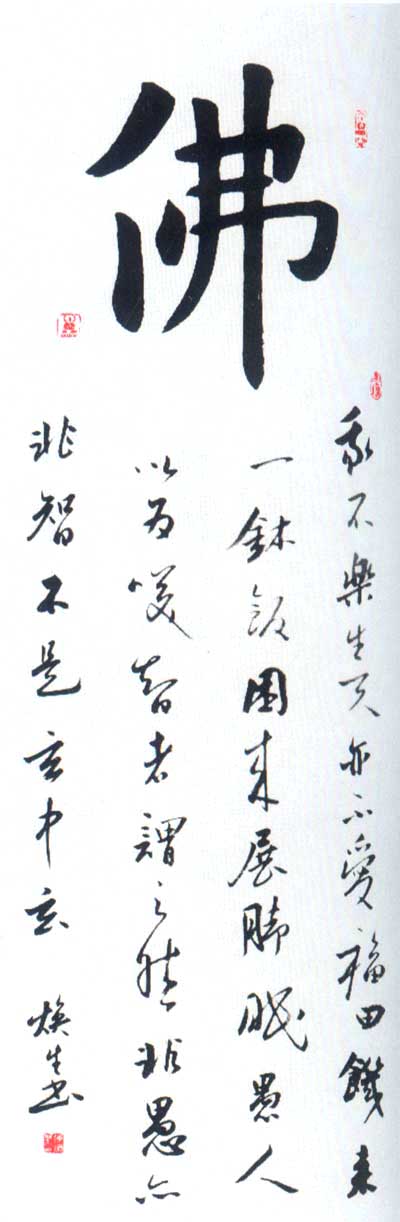 佛
我不樂生天亦不愛福田饑来
一鉢飯困来展脚眠愚人
以为咲智者謂之然非愚亦
非智不是玄中玄
煥生书